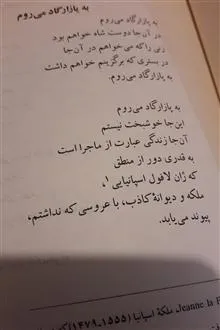 به پازارگاد می‌روم
به پازارگاد می‌روم
در آن‌جا دوست شاه خواهم بود
زنی را که می‌خواهم در آن‌جا
در بستری که برگزینم خواهم داشت
به پازارگاد می‌روم.
به پازارگاد می‌روم
این‌جا خوشبخت نیستم
آن‌جا زندگی عبارت از ماجرا است
به قدری دور از منطق
که ژان لافول اسپانیایی ۱،
ملکه و دیوانهٔ کاذب، با عروسی که نداشتم،
پیوند می‌یابد.
Jeanne la F، ملکهٔ اسپانیا (۱۵۵۵-۱۴۷۹)